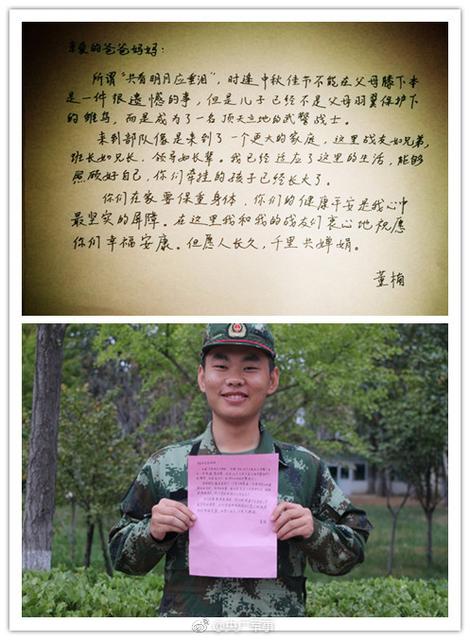 亲爱的爸爸妈妈：
所谓“共看明月应垂泪”，时逢中秋佳节不能在父母膝下本
是一件很遗憾的事，但是儿子已经不是父母羽翼保护下
的雏鸟，而是成为了一名顶天立地的武警战士。
来到部队像是来到了一个更大的家庭，这里战友如兄弟，
班长如兄长，领导如长辈。我已经适应了这里的生活，能够
照顾好自己，你们牵挂的孩子已经长大了。
你们在家要保重身体，你们的健康平安是我心中
最坚实的屏障。在这里我和我的战友们衷心地祝愿
你们幸福安康。但愿人长久，千里共婵娟。
董楠
@央广军事